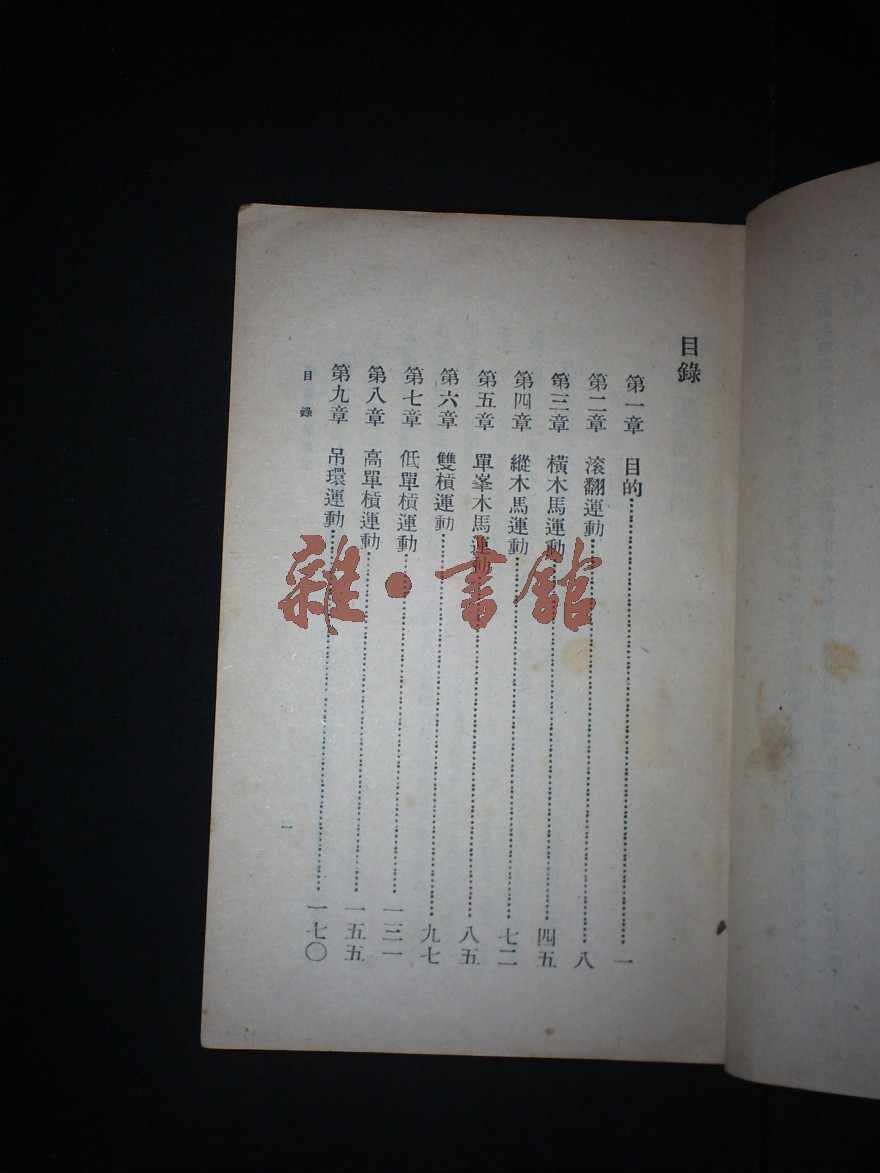 目錄
第一章 目的……一
第二章 滚翻運動……八
第三章 橫木馬運動……四五
第四章 縱木馬運動……七二
第五章 單峯木馬運動……八五
第六章 雙槓運動……九七
第七章 低單槓運動……一三一
第八章 高單槓運動……一五五
第九章 吊環運動……一七〇
目錄
一
雜·書館